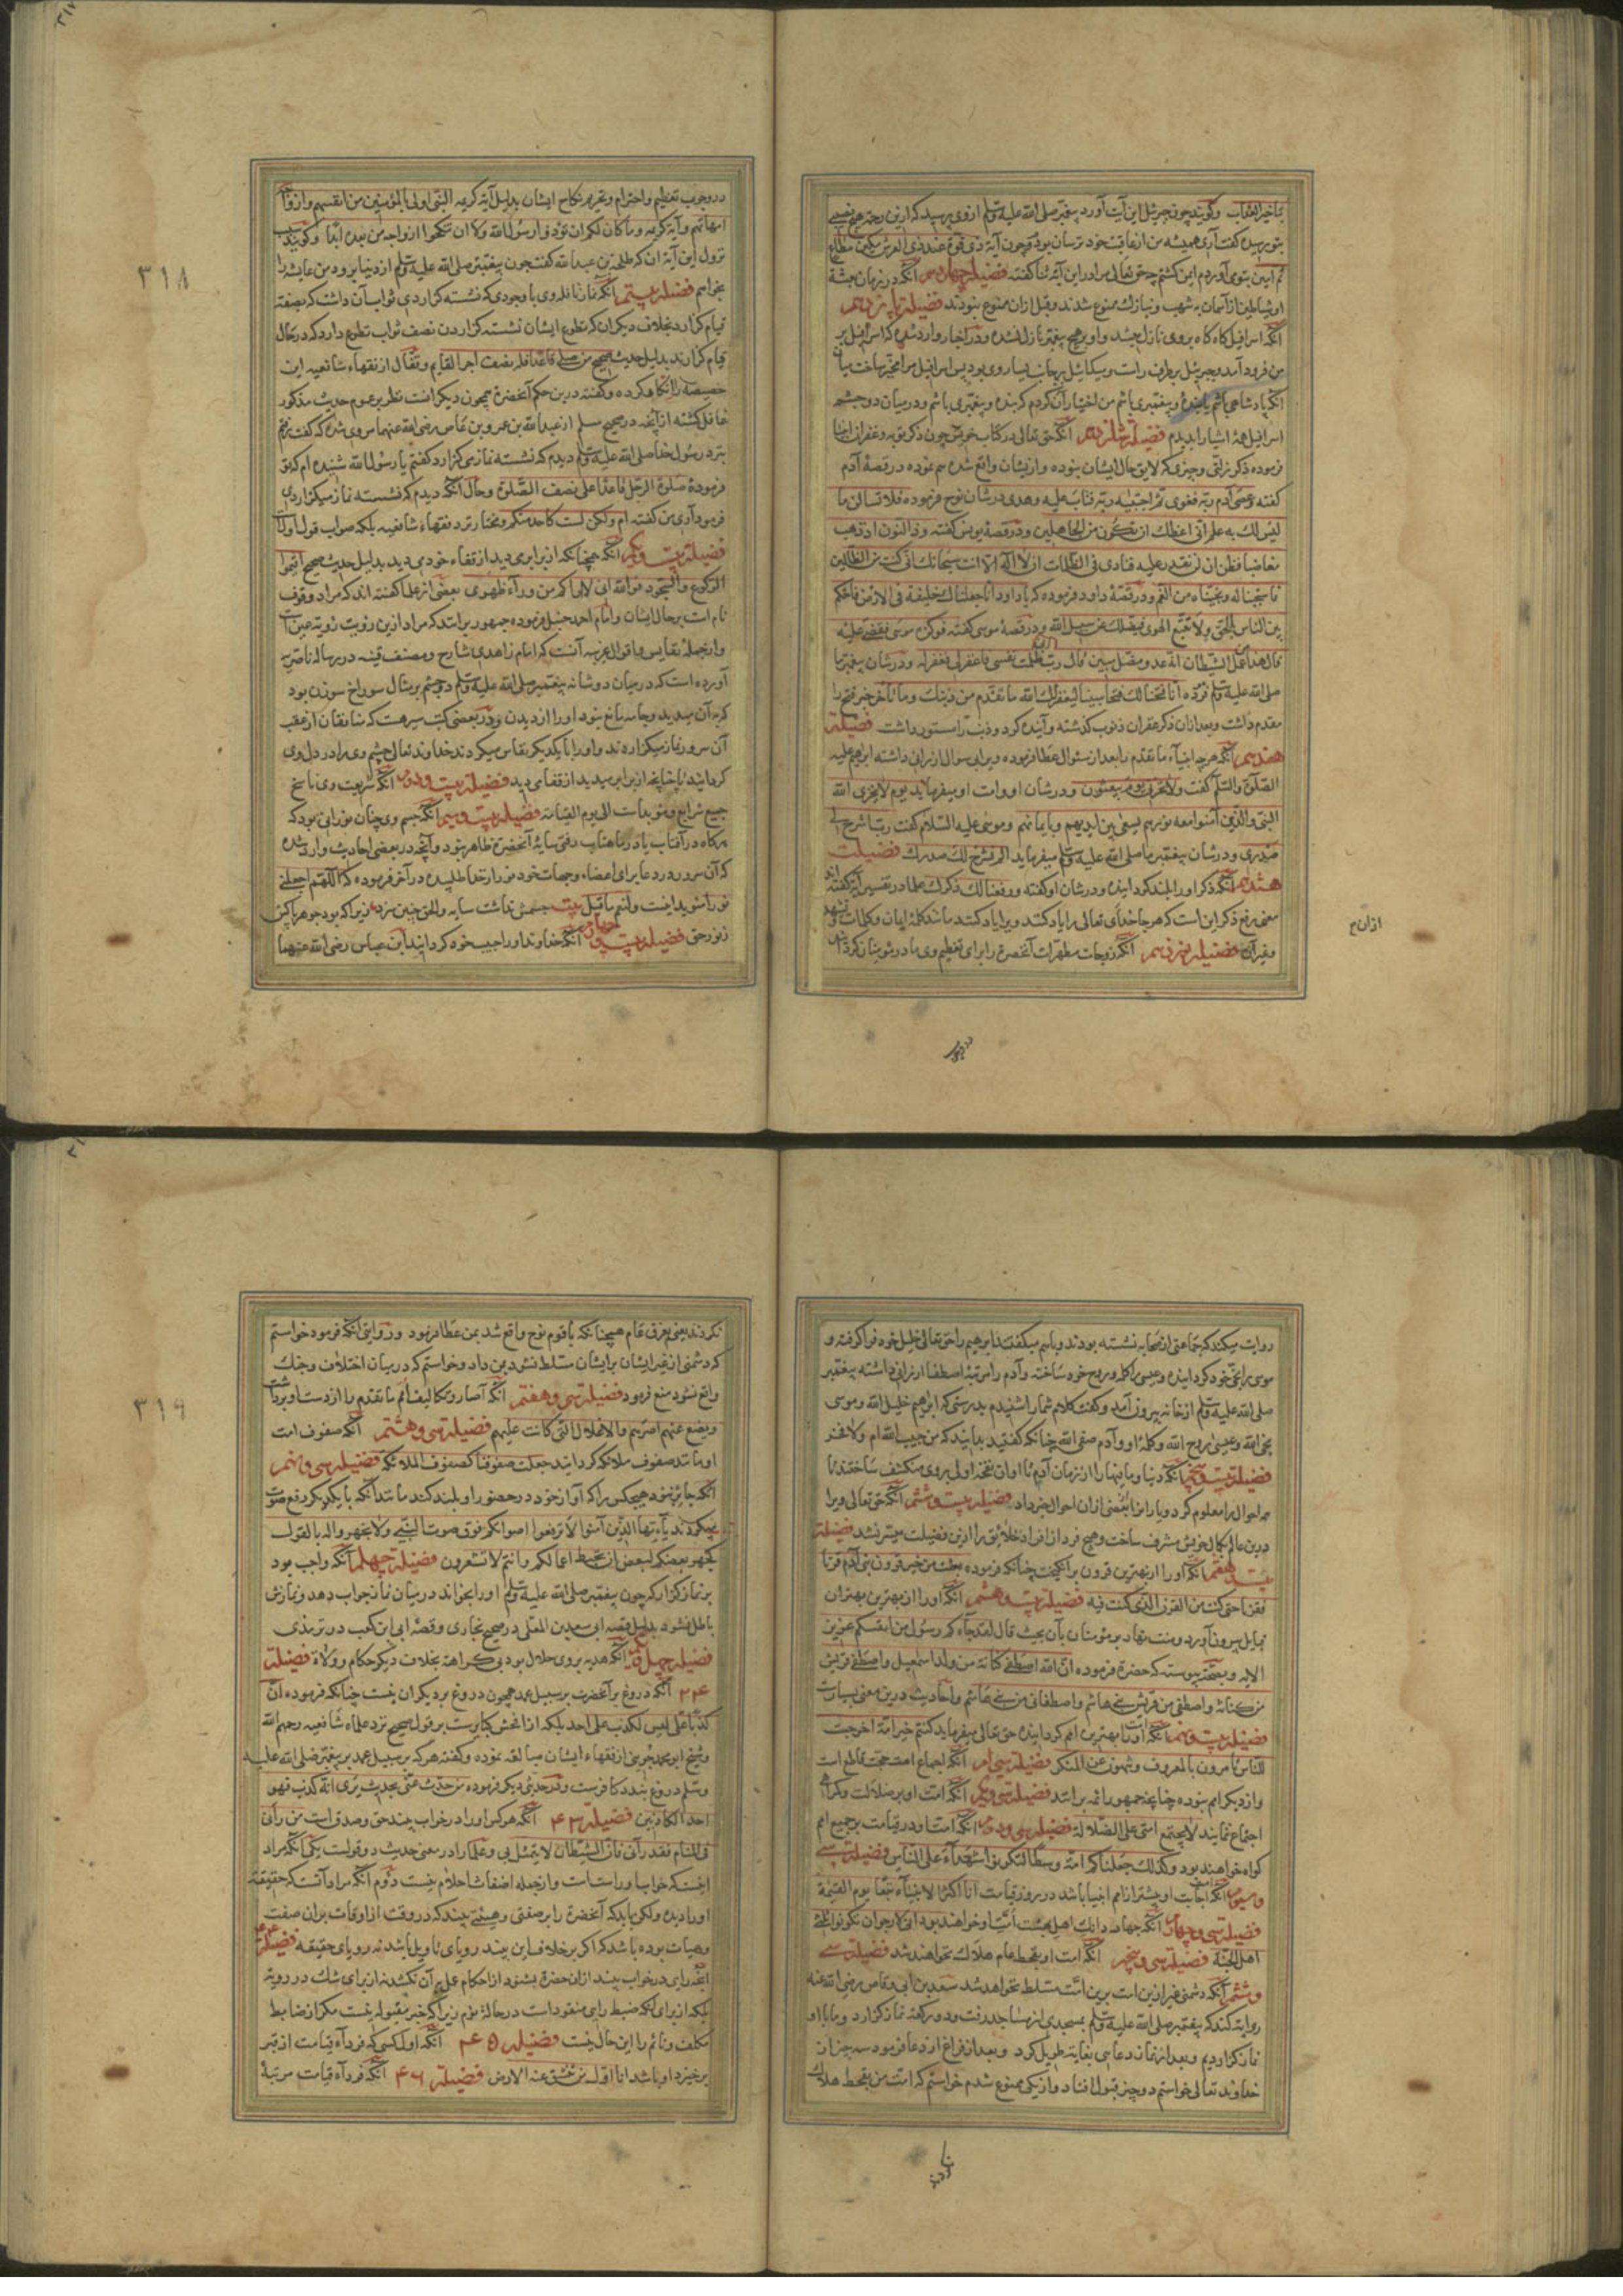 بتاخیر العقاب وگویند چون جبرئیل این آیت آورد پیغمبر صلی الله علیه وسلم از وی پرسید که ازین رحمة هیچ نصیبی
بتو رسیده گفت آری همیشه من از عاقبت خود ترسان بودم چون آیة ذی قوة عند ذی العرش مکین مطاع
ثم امین بتوی آوردم ایمن گشتم چه حق تعالی مرا در این آیة ثنا گفته فضیلة چهاردهم آنکه در زمان بعثة
او شیاطین از آسمان به شهب ممنوع شدند وقبل ازان ممنوع نبودند فضیلة پانزدهم
آنکه اسرافیل گاه گاه بر وی نازل میشد و بر هیچ پیغمبر نازل نشده ودر اخبار وارد شده که اسرافیل بر
من فرود آمد وجبرئیل بر طرف راست ومیکائیل بر جانب یسار وی بود پس اسرافیل مرا مخیر ساخت میان
آنکه پادشاهی باشم یا بنده و پیغمبری باشم من اختیار آن کردم که بنده و پیغمبری باشم و در میان دو چشم
اسرافیل همه اشیا را بدیدم فضیلة شانزدهم آنکه حق تعالی در کتاب خویش چون ذکر توبه وغفران انبیا
فرموده ذکر زلتی وچیزی که لایق حال ایشان نبوده و از یشان واقع شده هم نموده در قصهٔ آدم
گفته وعصی آدم ربه فغوی ثم اجتبیه ربه فتاب علیه وهدی در شان نوح فرموده فلا تسألن ما
لیس لك به علم انی اعظك ان تکون من الجاهلین ودر قصهٔ یونس گفته وذا النون اذ ذهب
مغاضبا فظن ان لن نقدر علیه فنادی فی الظلمات ان لا اله الا انت سبحانك انی کنت من الظالمین
فاستجبنا له ونجیناه من الغم ودر قصهٔ داود فرموده که یا داود انا جعلناك خلیفة فی الارض فاحکم
بین الناس بالحق ولا تتبع الهوی فیضلك عن سبیل الله ودر قصهٔ موسی گفته فوکزه موسی فقضی علیه
قال هذا من عمل الشیطان انه عدو مضل مبین قال رب انی ظلمت نفسی فاغفر لی فغفر له ودر شان پیغمبر ما
صلی الله علیه وسلم فرموده انا فتحنا لك فتحا مبینا لیغفر لك الله ما تقدم من ذنبك وما تأخر خبر فتح را
مقدم داشت وبعد ازان ذکر غفران ذنوب گذشته وآینده کرد وذنب را مستور داشت فضیلة
هفدهم آنکه هر چه انبیاء ما تقدم را بعد از سئوال عطا فرموده ویرا بی سوال ارزانی داشته ابرهیم علیه
الصلوة والسلام گفت ولا تخزنی یوم یبعثون ودر شان او وامت او میفرماید یوم لا یخزی الله
النبی والذین آمنوا معه نورهم یسعی بین ایدیهم وبایمانهم وموسی علیه السلام گفت رب اشرح لی
صدری ودر شان پیغمبر ما صلی الله علیه وسلم میفرماید الم نشرح لك صدرك فضیلت
هشدهم آنکه ذکر او را بلند گردانیده ودر شان او گفته ورفعنا لك ذکرك علما در تفسیر آیة گفته اند
معنی رفع ذکر این است که هر جا خدای تعالی را یاد کنند ویرا یاد کنند مانند کلمهٔ ایمان وکلمات تشهد
وغیر آن فضیلة نوزدهم آنکه زوجات مطهرات آنحضرة را برای تعظیم وی مادر مؤمنان کرده
ازان
در وجوب
٣١٨
در وجوب تعظیم واحترام وتحریم نکاح ایشان بدلیل آیة کریمه النبی اولی بالمؤمنین من انفسهم وازواجه
امهاتهم وآیة کریمه وما کان لکم ان تؤذوا رسول الله ولا ان تنکحوا ازواجه من بعده ابدا وگویند سبب
نزول این آیة آن که طلحة بن عبدالله گفت چون پیغمبر صلی الله علیه وسلم از دنیا برود من عایشه را
بخواهم فضیلة بیستم آنکه نماز نافله وی با وجودی که نشسته گزاردی ثواب آن داشت که بصفة
قیام گزارد بخلاف دیگران که تطوع ایشان نشسته گزاردن نصف ثواب تطوع دارد که در حال
قیام گزارند بدلیل حدیث صحیح من صلی قاعدا فله نصف اجر القایم وقفال از فقهاء شافعیه این
خصیصه را انکار کرده وگفته درین حکم آنحضرة همچون دیگرانست نظر بر عموم حدیث مذکور
غافل گشته از آنچه در صحیح مسلم از عبدالله بن عمرو بن عاص رضی الله عنهما مروی شده که گفت رفتم
نزد رسول خدا صلی الله علیه وسلم دیدم که نشسته نماز می گزارد گفتم یا رسول الله شنیده ام که تو
فرمودهٔ صلوة الرجل قاعدا علی نصف الصلوة وحال آنکه دیدم که نشسته نماز میگزاردی
فرمود آری من گفته ام ولکن لست کاحد منکم ومختار نزد فقهاء شافعیه بلکه صواب قول اولست
فضیلة بیست ویکم آنکه همچنانکه از برابر می دید از قفاء خود می دید بدلیل حدیث صحیح اتموا
الرکوع والسجود فوالله انی لاراکم من وراء ظهوری بعضی از علما گفته اند که مراد وقوف
تام است بر حال ایشان وامام احمد حنبل فرموده جمهور برانند که مراد ازین رؤیت رؤیة عین است
وازجملهٔ نفایس واقوال غریبه آنست که امام زاهدی شارح ومصنف قنیه در رسالهٔ ناصریه
آورده است که در میان دو شانهٔ پیغمبر صلی الله علیه وسلم دو چشم بر مثال سوراخ سوزن بود
که به آن میدید وجامه مانع نبود او را از دیدن ودر بعضی کتب سیر هست که منافقان از عقب
آن سرور نماز میگزاردند واو را با یکدیگر نقاس میکردند خداوند تعالی چشم وی را در دل وی
گردانید تا چنانچه از برابر میدید از قفا می دید فضیلة بیست ودوم آنکه شریعت وی ناسخ
جمیع شرایع ومؤبد است الی یوم القیامة فضیلة بیست وسیم آنکه جسم وی چنان نورانی بود که
هرگاه در آفتاب یا در ماهتاب رفتی سایهٔ آنحضرة ظاهر نبود وآنچه در بعضی احادیث وارد شده
که آن سرور در دعا برای اعضاء وجهات خود نور از خدا طلبیده در آخر فرموده که اللهم اجعلنی
نورا مؤید اینست ولنعم ما قیل بیت جسمش نداشت سایه والحق چنین سزد زیرا که بود جوهر پاکش
ز نور حق فضیلة بیست وچهارم آنکه خداوند او را حبیب خود گردانید ابن عباس رضی الله عنهما
روایت میکند که جماعتی از صحابه نشسته بودند وباهم میگفتند ابرهیم را حق تعالی خلیل خود فراگرفته و
موسی را نجی خود گردانیده وعیسی را کلمه وروح خود ساخته وآدم را مرتبهٔ اصطفا ارزانی داشته پیغمبر
صلی الله علیه وسلم از خانه بیرون آمد وگفت کلام شما را شنیدم بدرستی که ابراهیم خلیل الله وموسی
نجی الله وعیسی روح الله وکلمهٔ او وآدم صفی الله چنانکه گفتید بدانید که من حبیب الله ام ولا فخر
فضیلة بیست وپنجم آنکه دنیا وما فیها را از زمان آدم تا اوان نفخهٔ اولی بر وی منکشف ساختند تا
همه احوال را معلوم کرد ویاران را بعضی ازان احوال خبر داد فضیلة بیست وششم آنکه حق تعالی ویرا
درین عالم بکمال خویش مشرف ساخت وهیچ فرد از افراد خلائق را ازین فضیلت میسر نشد فضیلة
بیست وهفتم آنکه او را از بهترین قرون برانگیخت چنانکه فرموده بعثت من خیر قرون بنی آدم قرنا
فقرنا حتی کنت من القرن الذی کنت فیه فضیلة بیست وهشتم آنکه او را از بهترین بهتران
قبایل بیرون آورد ومنت نهاد بر مؤمنان بآن بحیث قال لقد جاءکم رسول من انفسکم عزیز
الایه وبصحت پیوسته که حضرة فرموده ان الله اصطفی کنانة من ولد اسمعیل واصطفی قریش
من کنانة واصطفی من قریش بنی هاشم واصطفانی من بنی هاشم واحادیث درین معنی بسیارست
فضیلة بیست ونهم آنکه امت او را بهترین امم گردانیده حق تعالی میفرماید کنتم خیر امة اخرجت
للناس تأمرون بالمعروف وتنهون عن المنکر فضیلة سی ام آنکه اجماع امت حجت قاطع است
واز دیگر امم نبوده چنانچه جمهور ائمه برانند فضیلة سی ویکم آنکه امت او بر ضلالت وگمراهی
اجتماع ننمایند لا یجتمع امتی علی الضلالة فضیلة سی ودوم آنکه امت او در قیامت بر جمیع امم
گواه خواهند بود وکذلك جعلناکم امة وسطا لتکونوا شهداء علی الناس فضیلة سی
وسیوم آنکه امت اجابت او بیشتر از امم انبیا باشد در روز قیامت انا اکثر الانبیاء تبعا یوم القیمة
فضیلة سی وچهارم آنکه چهار دانك اهل بهشت امت او خواهند بود انی لارجو ان تکونوا ثلثی
اهل الجنة فضیلة سی وپنجم آنکه امت او بقحط عام هلاك نخواهند شد فضیلة سی
وششم آنکه دشمنی غیر ازین امت برین امت مسلط نخواهد شد سعد بن ابی وقاص رضی الله عنه
روایة کند که پیغمبر صلی الله علیه وسلم بمسجدی از مساجد رفت ودو رکعة نماز گزارد وما با او
نماز گزاردیم وبعد از نماز دعایی بغایة طویل کرد وبعد از فراغ از دعا فرمود سه چیز از
خداوند تعالی خواستم دو چیز قبول افتاد واز یکی ممنوع شدم خواستم که امت من بقحط هلاك
نکردند
٣١٩
نکردند یعنی بغرق عام همچنانکه با قوم نوح واقع شد بمن عطا فرمود وروایتی آنکه فرمود خواستم
که دشمنی از غیر ایشان بر ایشان مسلط نشود بمن داد وخواستم که در میان اختلاف وجنك
واقع نشود منع فرمود فضیلة سی وهفتم آنکه آصار وتکالیف امم ما تقدم را از امت او برداشت
ویضع عنهم اصرهم والاغلال التی کانت علیهم فضیلة سی وهشتم آنکه صفوف امت
او مانند صفوف ملائکه گردانید جعلت صفوفنا کصفوف الملائکة فضیلة سی ونهم
آنکه جایز نبود هیچکس را که آواز خود در حضور او بلند کند مانند آنکه با یکدیگر رفع صوت
میکردند یا ایها الذین آمنوا لا ترفعوا اصواتکم فوق صوت النبی ولا تجهروا له بالقول
کجهر بعضکم لبعض ان تحبط اعمالکم وانتم لا تشعرون فضیلة چهلم آنکه واجب بود
بر نماز گزار که چون پیغمبر صلی الله علیه وسلم او را بخواند در میان نماز جواب دهد ونمازش
باطل نشود بدلیل قصه ابی سعید بن المعلی در صحیح بخاری وقصه ابی ابن کعب در ترمذی
فضیلة چهل ویکم آنکه هدیه بر وی حلال بود بی کراهة بخلاف دیگر حکام وولاة فضیلة
٤٢ آنکه دروغ بر آنحضرت بر سبیل عمد همچون دروغ بر دیگران نیست چنانکه فرموده ان
کذبا علی لیس لکذب علی احد بلکه از افحش کبایرست بر قول صحیح نزد علماء شافعیه رحمهم الله
وشیخ ابو محمد جوینی از فقهاء ایشان مبالغه نموده وگفته هر که بر سبیل عمد بر پیغمبر صلی الله علیه
وسلم دروغ بندد کافرست ودر حدیثی دیگر فرموده من حدث عنی بحدیث یری انه کذب فهو
احد الکاذبین فضیلة ٤٣ آنکه هر کس او را در خواب بیند حق وصدق است من رآنی
فی المنام فقد رآنی فان الشیطان لا یتمثل بی وعلما را در معنی حدیث دو قولست یکی آنکه مراد
اینست که خواب او راست است وازجمله اضغاث احلام نیست دوم آنکه مراد آنست که حقیقة
او را دیده ولکن باید که آنحضرة را بر صفتی وهیئتی بیند که در وقت از اوقات بران صفت
وهیات بوده باشد که اگر بر خلاف این بیند رویای تأویل باشد نه رویای حقیقة فضیلة ٤٤
آنچه رای در خواب بیند ازان حضرة بشنود از احکام عمل بر آن نکند نه از برای شك در رویة
بلکه از برای آنکه ضبط رای مفقود است در حالة نوم زیرا که خبر مقبول نیست مگر از ضابط
مکلف ونائم را این حال نیست فضیلة ٤٥ آنکه اول کسی که فرداء قیامت از قبر
برخیزد او باشد انا اول من تنشق عنه الارض فضیلة ٤٦ آنکه فرداء قیامت مرتبهٔ